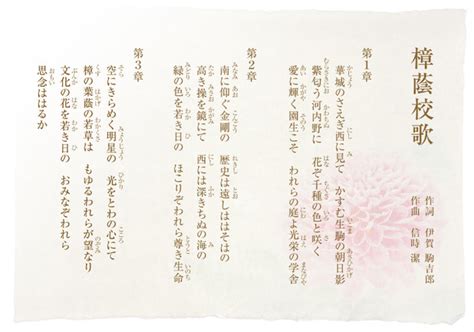 樟蔭校歌
作詞　伊賀 駒吉郎
作曲　信時 潔
第1章
華城のさえぎ西に見て　かすむ生駒の朝日影
紫匂う河内野に　花ぞ千種の色と咲く
愛に輝く園生こそ　われらの庭よ光栄の学舎
第2章
南に仰ぐ金剛の　歴史は遠しははそはの
高き操を鏡にて　西には深きちぬの海の
緑の色を若き日の　ほこりぞわれら尊き生命
第3章
空にきらめく明星の　光をとわの心にて
樟の葉蔭の若草は　もゆるわれらが望なり
文化の花を若き日の　おみなぞわれら
思念ははるか